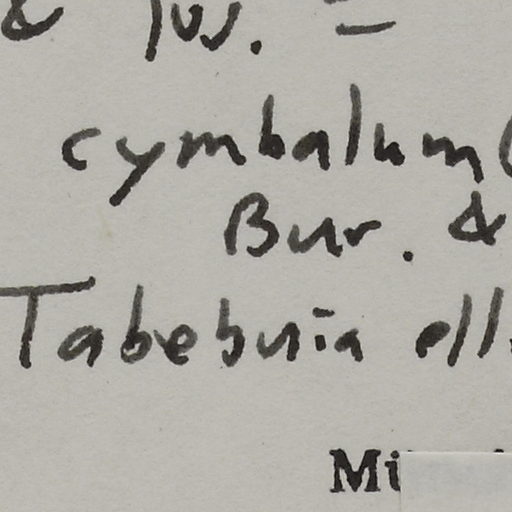 &
cymbalum(
Bur. &
Tabebuia ell.
Mi